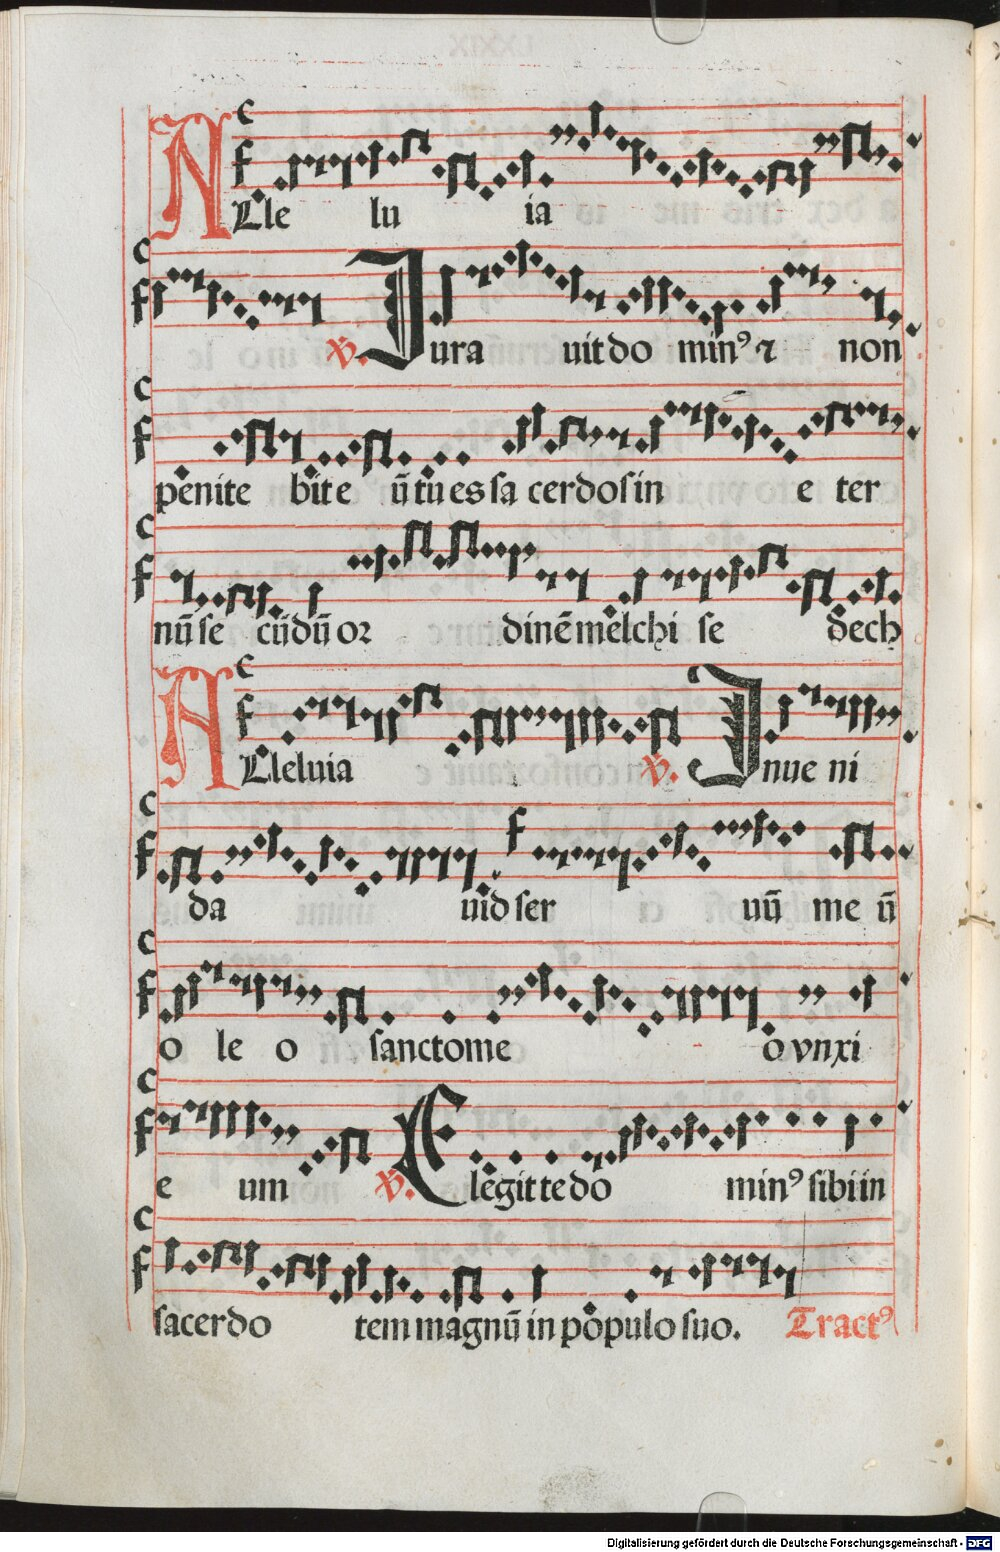 ALle lu ia
℣. Jura uit do minꝰ ⁊ non
penite bit e ũ tu es sa cerdos in e ter
nũ se cũdũ oꝛ dinẽ melchi se dech
ALleluia ℣. Inue ni
da uid ser uũ me ũ
o le o sancto me o vnxi
e um ℣. Elegit te do minꝰ sibi in
sacerdo tem magnũ in populo suo. Tractꝰ
Digitalisierung gefördert durch die Deutsche Forschungsgemeinschaft - DFG